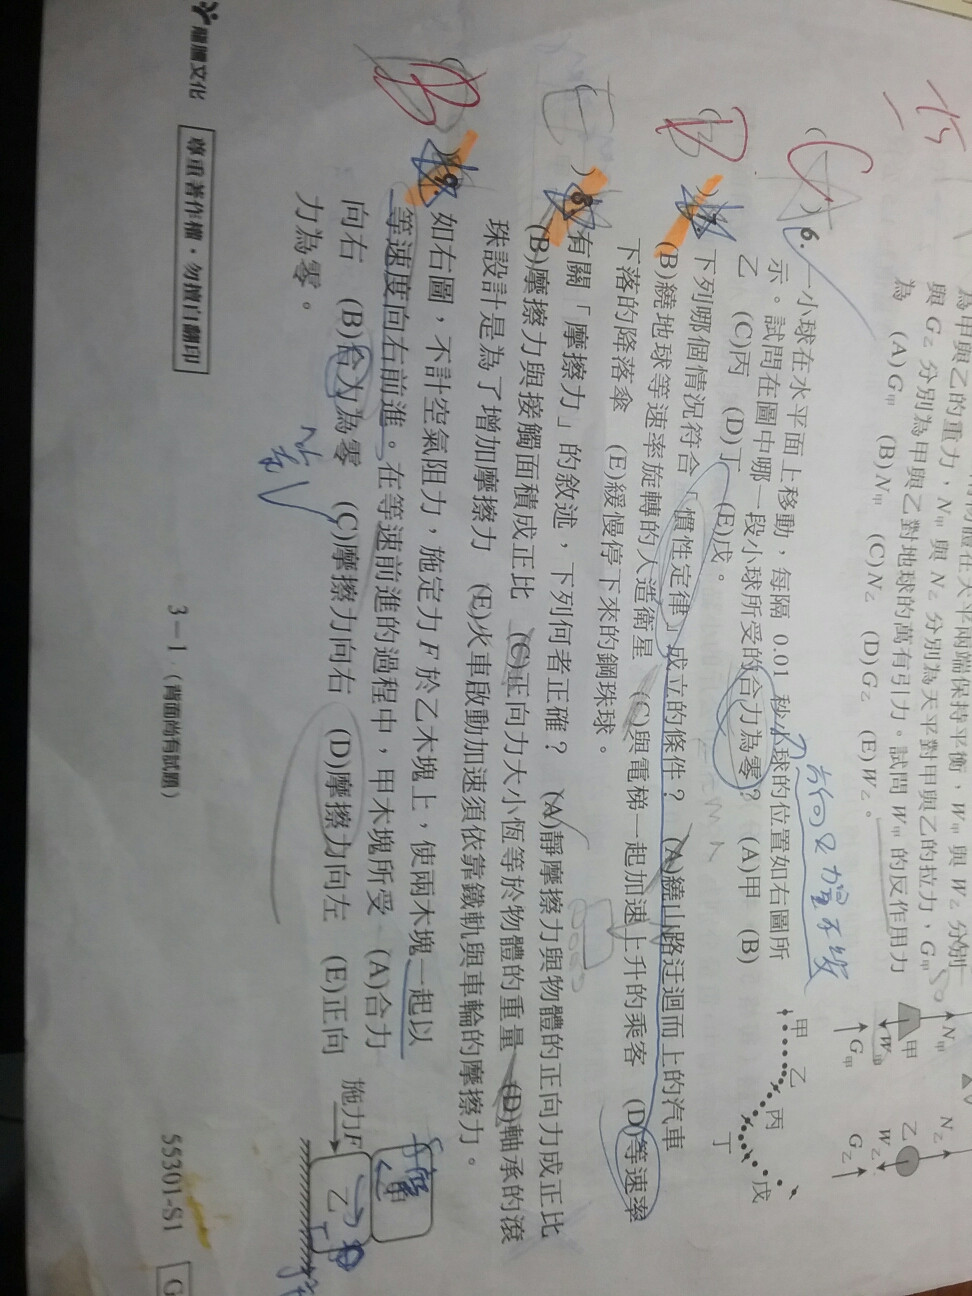 為甲與乙的重力，N甲 與 N乙 分別為天平對甲與乙的拉力，G甲
與 G乙 分別為甲與乙對地球的萬有引力。試問 W甲 的反作用力
為 (A)G甲 (B)N甲 (C)N乙 (D)G乙 (E)W乙。
N甲
甲
W甲
G甲
N乙
乙
W乙
G乙
(C)6. 一小球在水平面上移動，每隔 0.01 秒小球的位置如右圖所
示。試問在圖中哪一段小球所受的合力為零？ (A)甲 (B)
乙 (C)丙 (D)丁 (E)戊。
甲 乙 丙 丁 戊
(B)7. 下列哪個情況符合「慣性定律」成立的條件？ (A)繞山路迂迴而上的汽車
(B)繞地球等速率旋轉的人造衛星 (C)與電梯一起加速上升的乘客 (D)等速率
下落的降落傘 (E)緩慢停下來的鋼珠球。
( )8. 有關「摩擦力」的敘述，下列何者正確？ (A)靜摩擦力與物體的正向力成正比
(B)摩擦力與接觸面積成正比 (C)正向力大小恆等於物體的重量 (D)軸承的滾
珠設計是為了增加摩擦力 (E)火車啟動加速須依靠鐵軌與車輪的摩擦力。
(B)9. 如右圖，不計空氣阻力，施定力 F 於乙木塊上，使兩木塊一起以
等速度向右前進。在等速前進的過程中，甲木塊所受 (A)合力
向右 (B)合力為零 (C)摩擦力向右 (D)摩擦力向左 (E)正向
力為零。
施力F
甲
乙
龍騰文化
尊重著作權・勿擅自翻印
3－1（背面尚有試題）
55301-S1
G